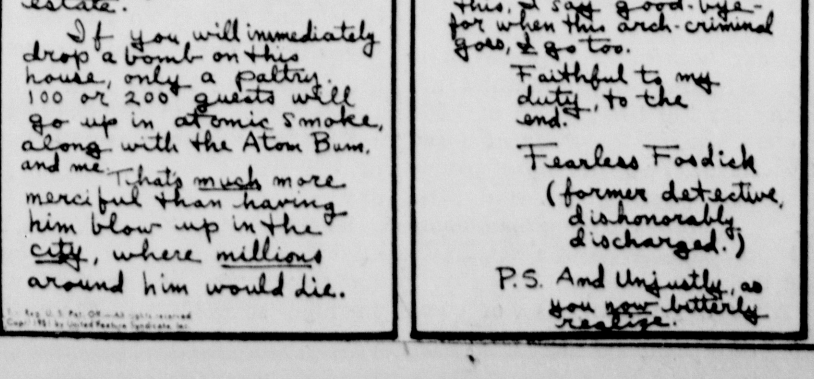 estate.
If you will immediately
drop a bomb on this
house, only a paltry
100 or 200 guests will
go up in atomic smoke,
along with the Atom Bum.
and me.
That's much more
merciful than having
him blow up in the
city, where millions
around him would die.
Reg. U. S. Pat. Off.—All rights reserved
Copr. 1951 by United Feature Syndicate, Inc.
this, I say good-bye-
for when this arch-criminal
goes, I go too.
Faithful to my
duty, to the
end.
Fearless Fosdick
(former detective,
dishonorably
discharged.)
P.S. And Unjustly, as
you now bitterly
realize.